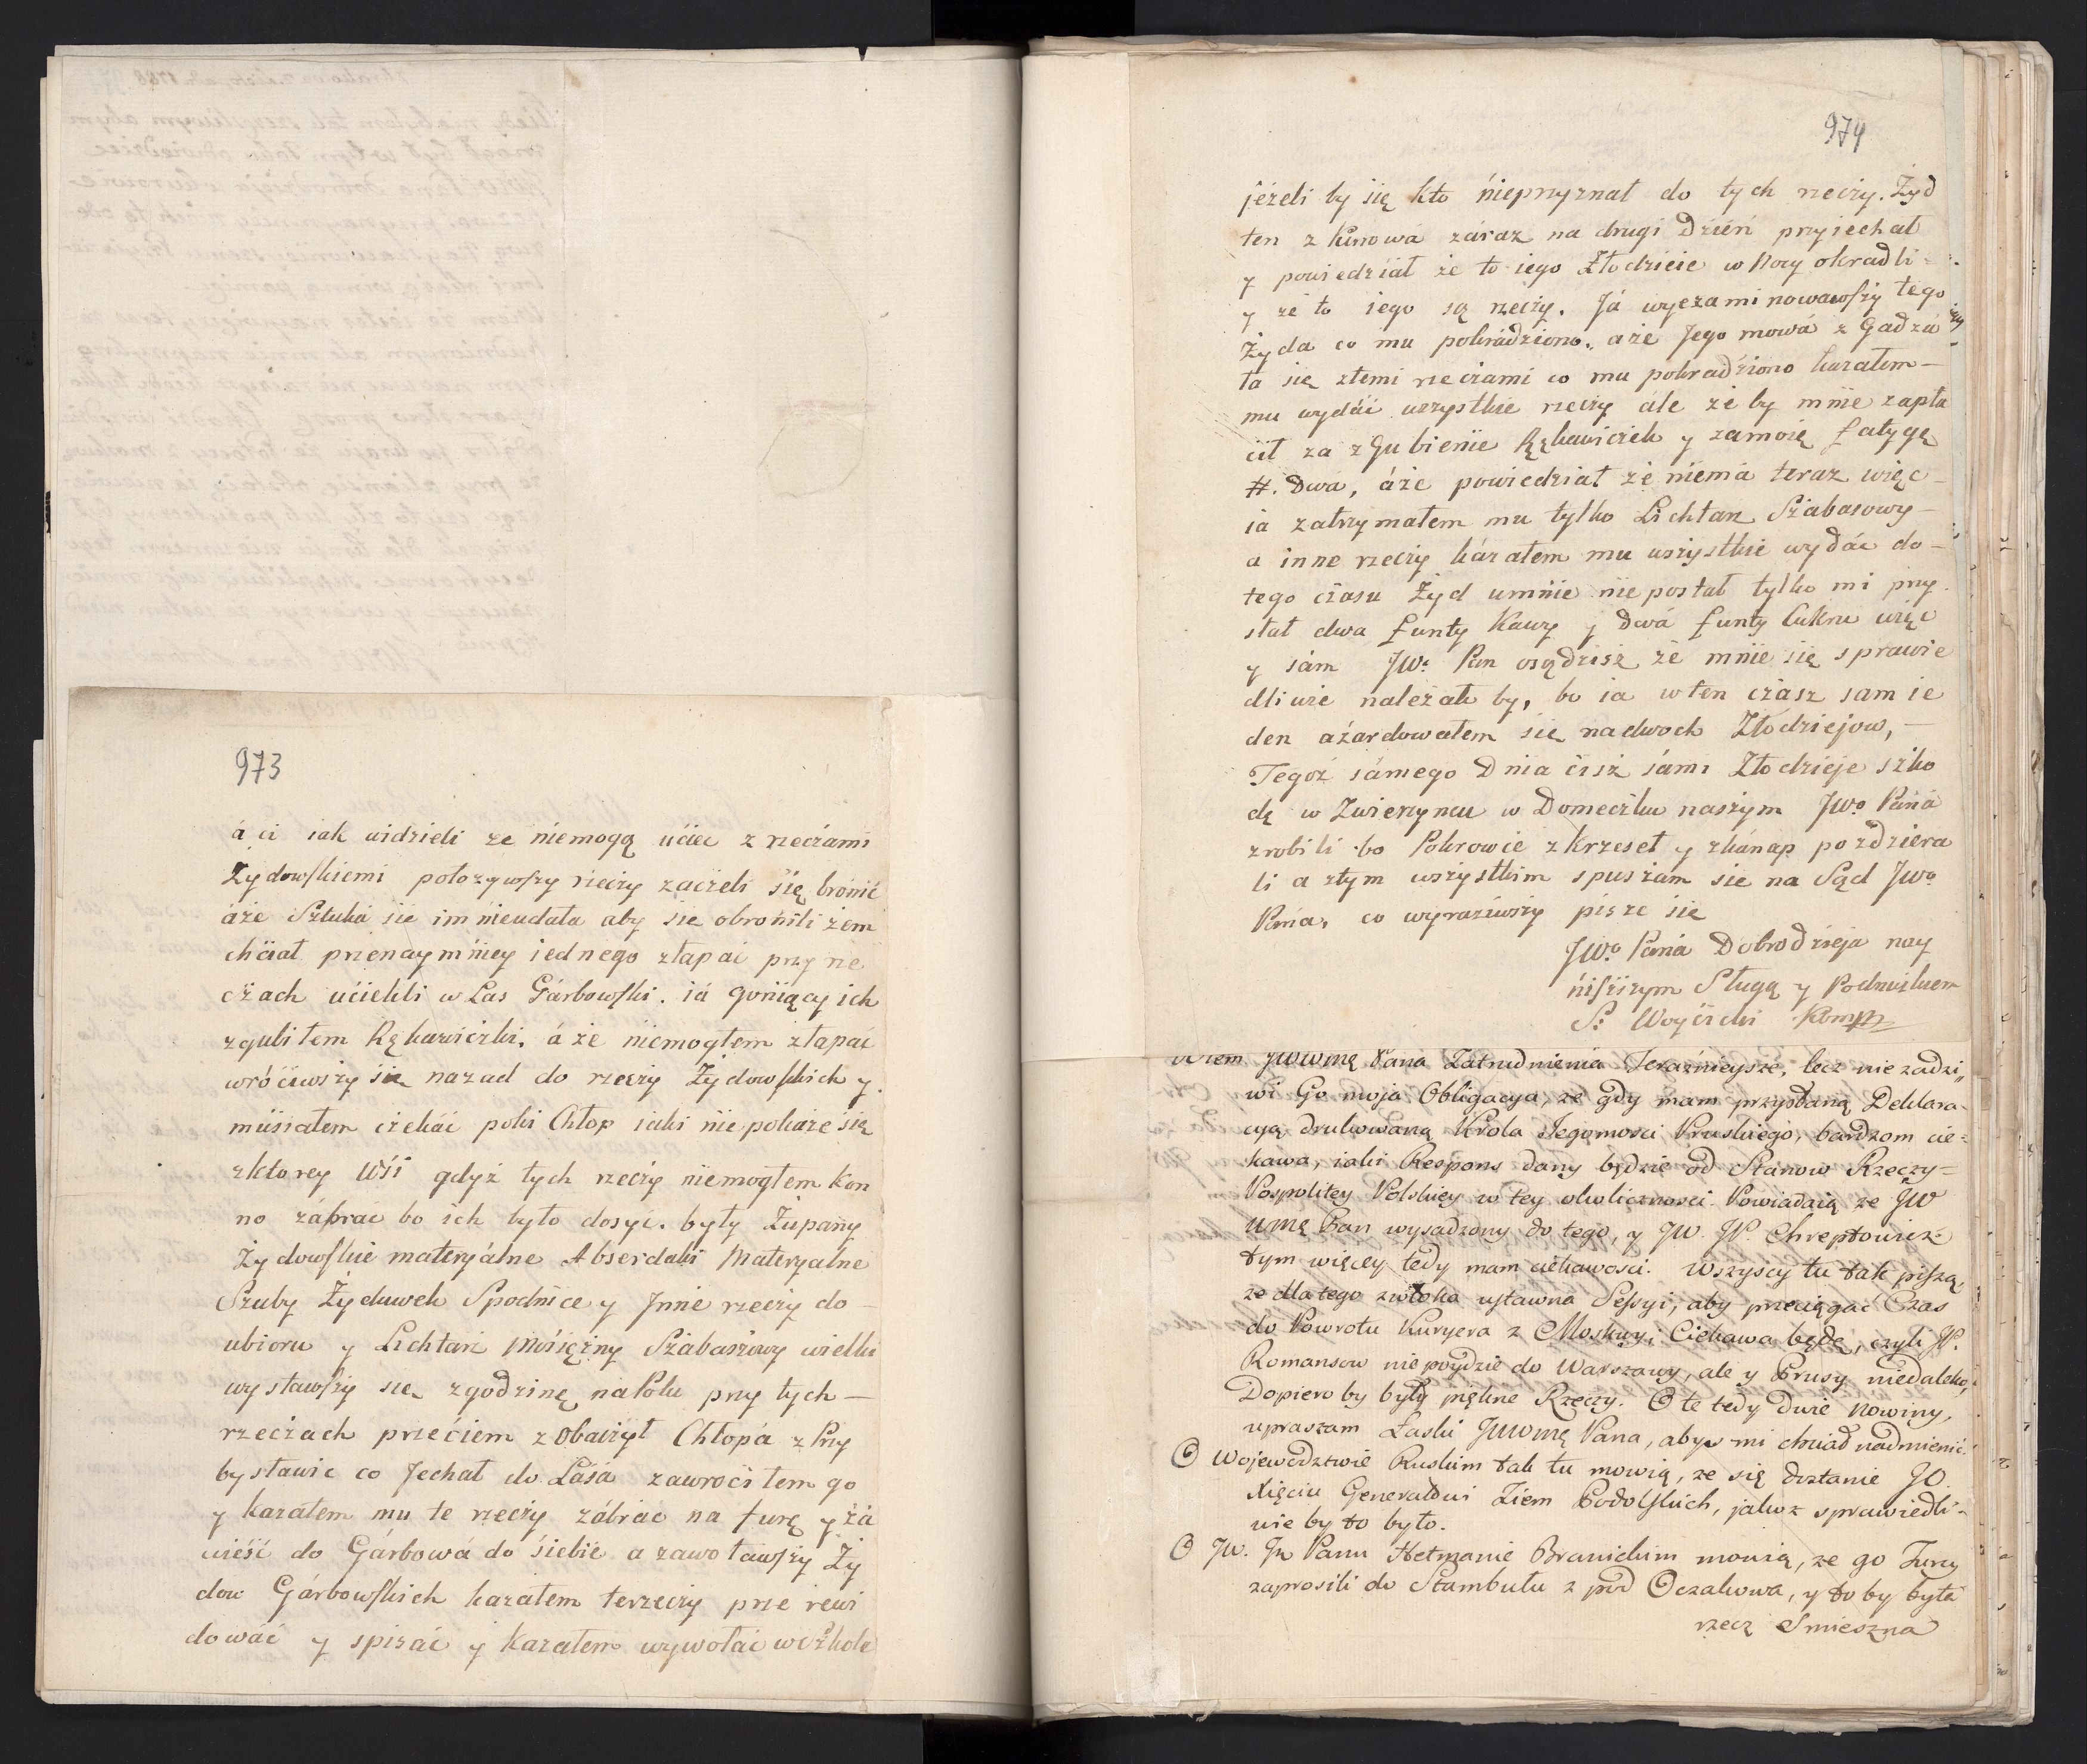 973
á ci iak widzieli ze niemogą uciec z rzeczami
Zydowskiemi położywszy rzeczy zaczeli się bronić
áże Sztuka sie im nieudała aby sie obronili żem
chciał przenaymniey iednego złapać przy rze
czach uciekli w Las Gárbowski. iá goniący ich
zgubiłem Rękawiczki, á że niemogłem złapać
wróciwszy się nazad do rzeczy Żydowskich y
músiałem czekáć poki Chłop iaki nie pokaze się
z ktorey WSi gdyż tych rzeczy niemogłem kon
no zábrac bo ich było dosyć. były Żupany
Żydowskie materyálne Abserdaki Materyalne
Szuby Żydowek Spodnice y Jnne rzeczy do
ubioru y Lichtarz Mosiężny Szabaszowy wielki
wystawszy się zgodzinę na Polu przy tych
rzeczach przeciem zobaczył Chłopá z Przy
bysławic co Jechał do Lása zawrociłem go
y kazałem mu te rzeczy zábrác na furę y zá
wieść do Gárbowá do siebie a zawoławszy Ży
dow Gárbowskich kazałem terzeczy prze rewi
dowáć y spisáć y kazałem wywołać w Szkole
974
jeżeli by się kto nieprzyznał do tych rzeczy. Żyd
ten z Kurowá záraz na drugi Dzień przyiechał
y powiedział że to iego Złodzieie w Nocy okradli
y że to iego są rzeczy. Já wyexaminowawszy tego
Żyda co mu pokrádziono. a że Jego mowá z Gadzá
ła się z temi rzeczami co mu pokradziono kazałem
mu wydáć wszystkie rzeczy ále żeby mnie zapła
cił za zGubienie Rękawiczek y zamoię fatygę
#. Dwá, áże powiedział że niemá teraz więc
ia zatrzymałem mu tylko Lichtarz Szabasowy
a inne rzeczy kázałem mu wszystkie wydác do
tego czasu Żyd umnie nie postał tylko mi przy
słał dwa funty Kawy y Dwá funty Cukru więc
y sám JWo Pan osądzisz że mnie się sprawie
dliwie należało by, bo ia w ten czasz sam ie
den ażardowałem się na dwoch Złodziejow,
Tegoż sámego Dnia ciż sámi Złodzieje szko
dę w Zwierzyncu w Domeczku naszym JWo Pána
zrobili bo Pokrowce z krzeseł y z kánap pozdziera
li a z tym wszystkim spuszám sie na Sąd JWo
Pána, co wyraziwszy pisze się
JWo Pána Dobrodzieja nay
niższym Sługą y Podnużkiem
S: Woycicki
Wiem JWWMę Pana Zatrudnienia Teraźnieysze, lecz nie zadzi„
wi Go moja Obligacya, ze gdy mam przysłaną Deklara-
cyą drukowaną Krola Jegomosci Pruskiego, bardzom cie=
kawa, iaki Respons dany będzie od Stanow Rzeczy=
Pospolitey Polskiey w tey okoliczności. Powiadaią ze JW
WMę Pan wysadzony do tego, y JW. JP. Chreptowicz
tym więcey tedy mam ciekawosci. Wszyscy tu tak piszą,
ze dla tego zwłoka ustawna Sessyi, aby przeciągać Czas
do Powrotu Kuryera z Moskwy; Ciekawa będę, czyli JP.
Romansow nie poydzie do Warszawy, ale y Prusy niedaleko,
Dopiero by były piękne Rzeczy. O te tedy dwie Nowiny,
upraszam Łaski JWWMę Pana, abyś mi chciał nadmienić.
O Wojewodztwie Ruskim tak tu mowią, ze się dostanie JO.
Xięciu Generałowi Ziem Podolskich, jakoż sprawiedli-
wie by to było.
O JW. Jn Panu Hetmanie Branickim mowią, ze go Turcy
zaprosili do Stambułu z pod Oczakowa, y to by była
rzecz Smieszna